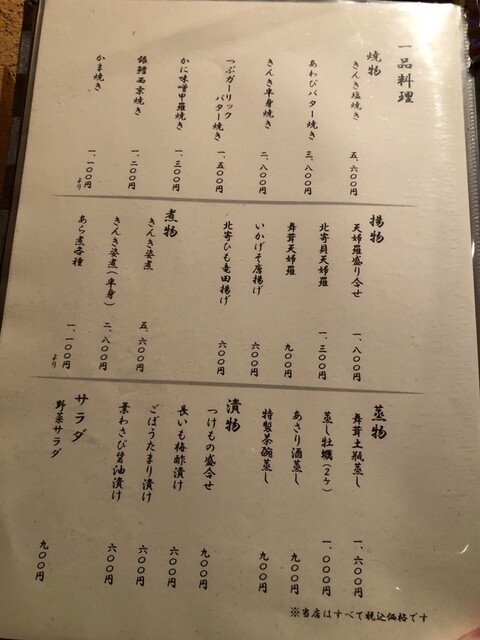 一品料理
焼物
きんき塩焼き 五、六〇〇円
あわびバター焼き 三、八〇〇円
きんき半身焼き 二、八〇〇円
つぶガーリック
バター焼き 一、五〇〇円
かに味噌甲羅焼き 一、三〇〇円
銀鱈西京焼き 一、二〇〇円
かま焼き 一、一〇〇円より
揚物
天婦羅盛り合せ 一、八〇〇円
北寄貝天婦羅 一、三〇〇円
舞茸天婦羅 九〇〇円
いかげそ唐揚げ 六〇〇円
北寄ひも竜田揚げ 六〇〇円
煮物
きんき姿煮 五、六〇〇円
きんき姿煮(半身) 二、八〇〇円
あら煮各種 一、一〇〇円より
蒸物
舞茸土瓶蒸し 一、六〇〇円
蒸し牡蠣(2ヶ) 一、〇〇〇円
あさり酒蒸し 九〇〇円
特製茶碗蒸し 九〇〇円
漬物
つけもの盛合せ 九〇〇円
長いも梅酢漬け 六〇〇円
ごぼうたまり漬け 六〇〇円
葉わさび醤油漬け 六〇〇円
サラダ
野菜サラダ 九〇〇円
※当店はすべて税込価格です